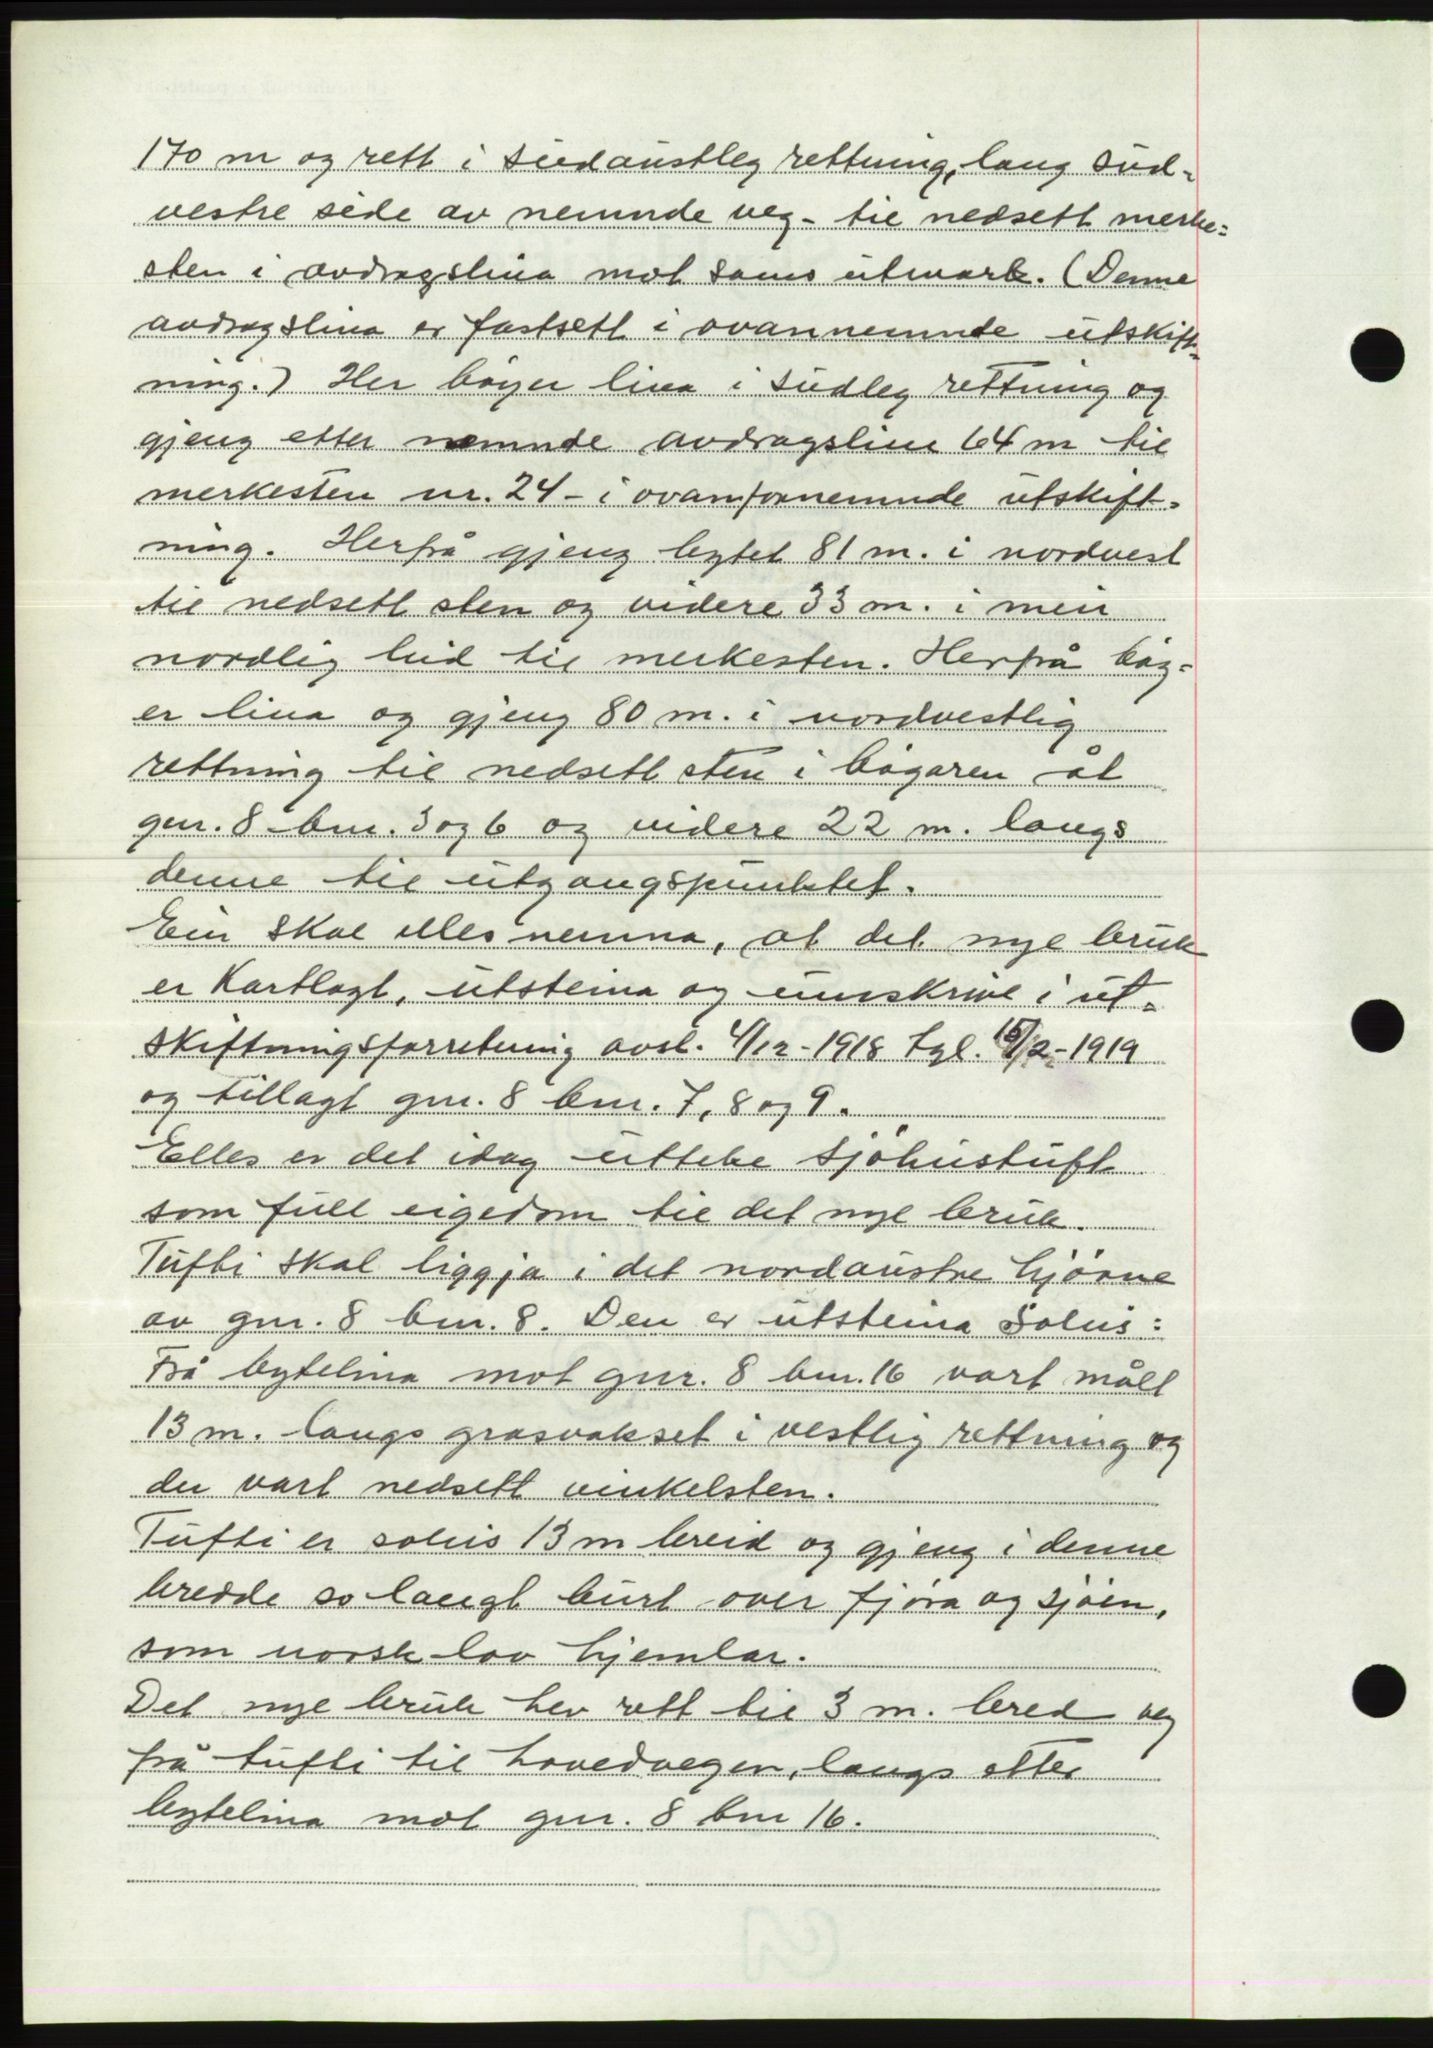 170 m og rett i sudaustleg rettning, lang sud-
vestre side av nemnde veg- til nedsett merke-
sten i avdragslina mot sams utmark. (Denne
avdragslina er fastsett i ovannemnde utskift-
ning.) Her böyer lina i sudleg rettning og
gjeng etter nemnde avdragsline 64 m til
merkesten nr. 24 - i ovanfornemnde utskift-
ning. Herfrå gjeng bytet 81 m. i nordvest
til nedsett sten og videre 33 m. i meir
nordlig leid til merkesten. Herfrå böy-
er lina og gjeng 80 m. i nordvestlig
rettning til nedsett sten i bögaren åt
gnr. 8 bnr. 3 og 6 og videre 22 m. langs
denne til utgangspunktet.
Ein skal elles nemna, at det nye bruk
er kartlagt, utsteina og umskrive i ut-
skiftningsforretning avsl. 4/12-1918 tgl. 15/2-1919
og tillagt gnr. 8 bnr. 7, 8 og 9.
Elles er det idag utteke sjöhustuft
som full eigedom til det nye bruk.
Tufti skal liggja i det nordaustre hjörne
av gnr. 8 bnr. 8. Den er utsteina soleis:
Frå bytelina mot gnr. 8 bnr. 16 vart målt
13 m. langs grasvakset i vestlig rettning og
der vart nedsett vinkelsten.
Tufti er soleis 13 m breid og gjeng i denne
bredde so langt burt over fjöra og sjöen,
som norsk lov hjemlar.
Det nye bruk hev rett til 3 m. bred veg
frå tufti til hovedvegen, langs etter
bytelina mot gnr. 8 bnr 16.